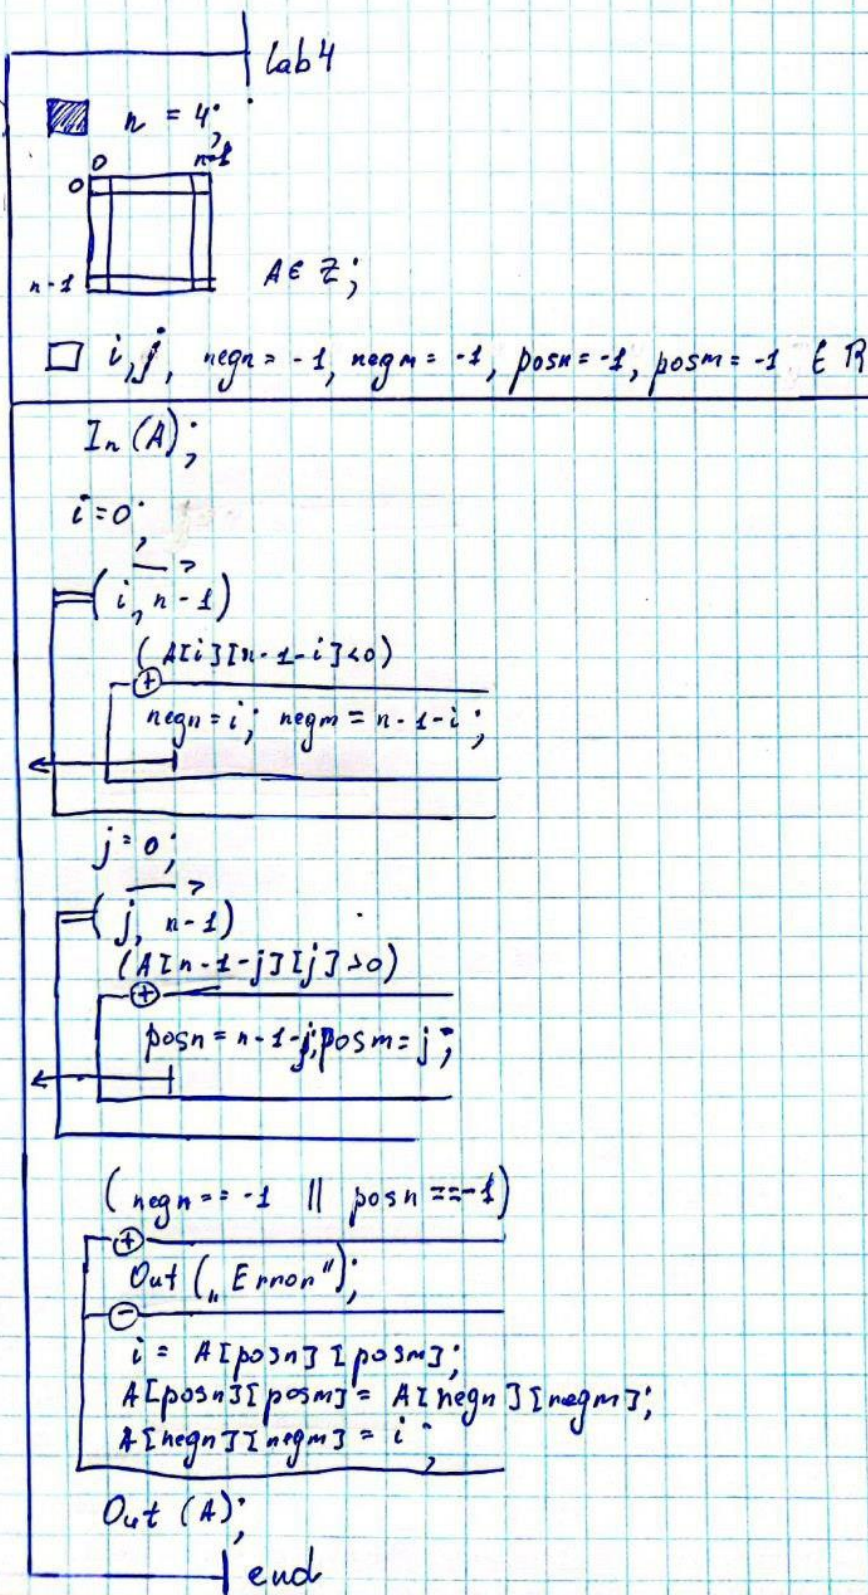 lab4
n = 4;
0 n-1
0
n-1 A ∈ Z;
i, j, negn = -1, negm = -1, posn = -1, posm = -1 ∈ R
In (A);
i = 0;
(i, n-1)
(A[i][n-1-i]<0)
+
negn = i; negm = n-1-i;
j = 0;
(j, n-1)
(A[n-1-j][j]>0)
+
posn = n-1-j; posm = j;
(negn == -1 || posn == -1)
+
Out („Error");
-
i = A[posn][posm];
A[posn][posm] = A[negn][negm];
A[negn][negm] = i;
Out (A);
end